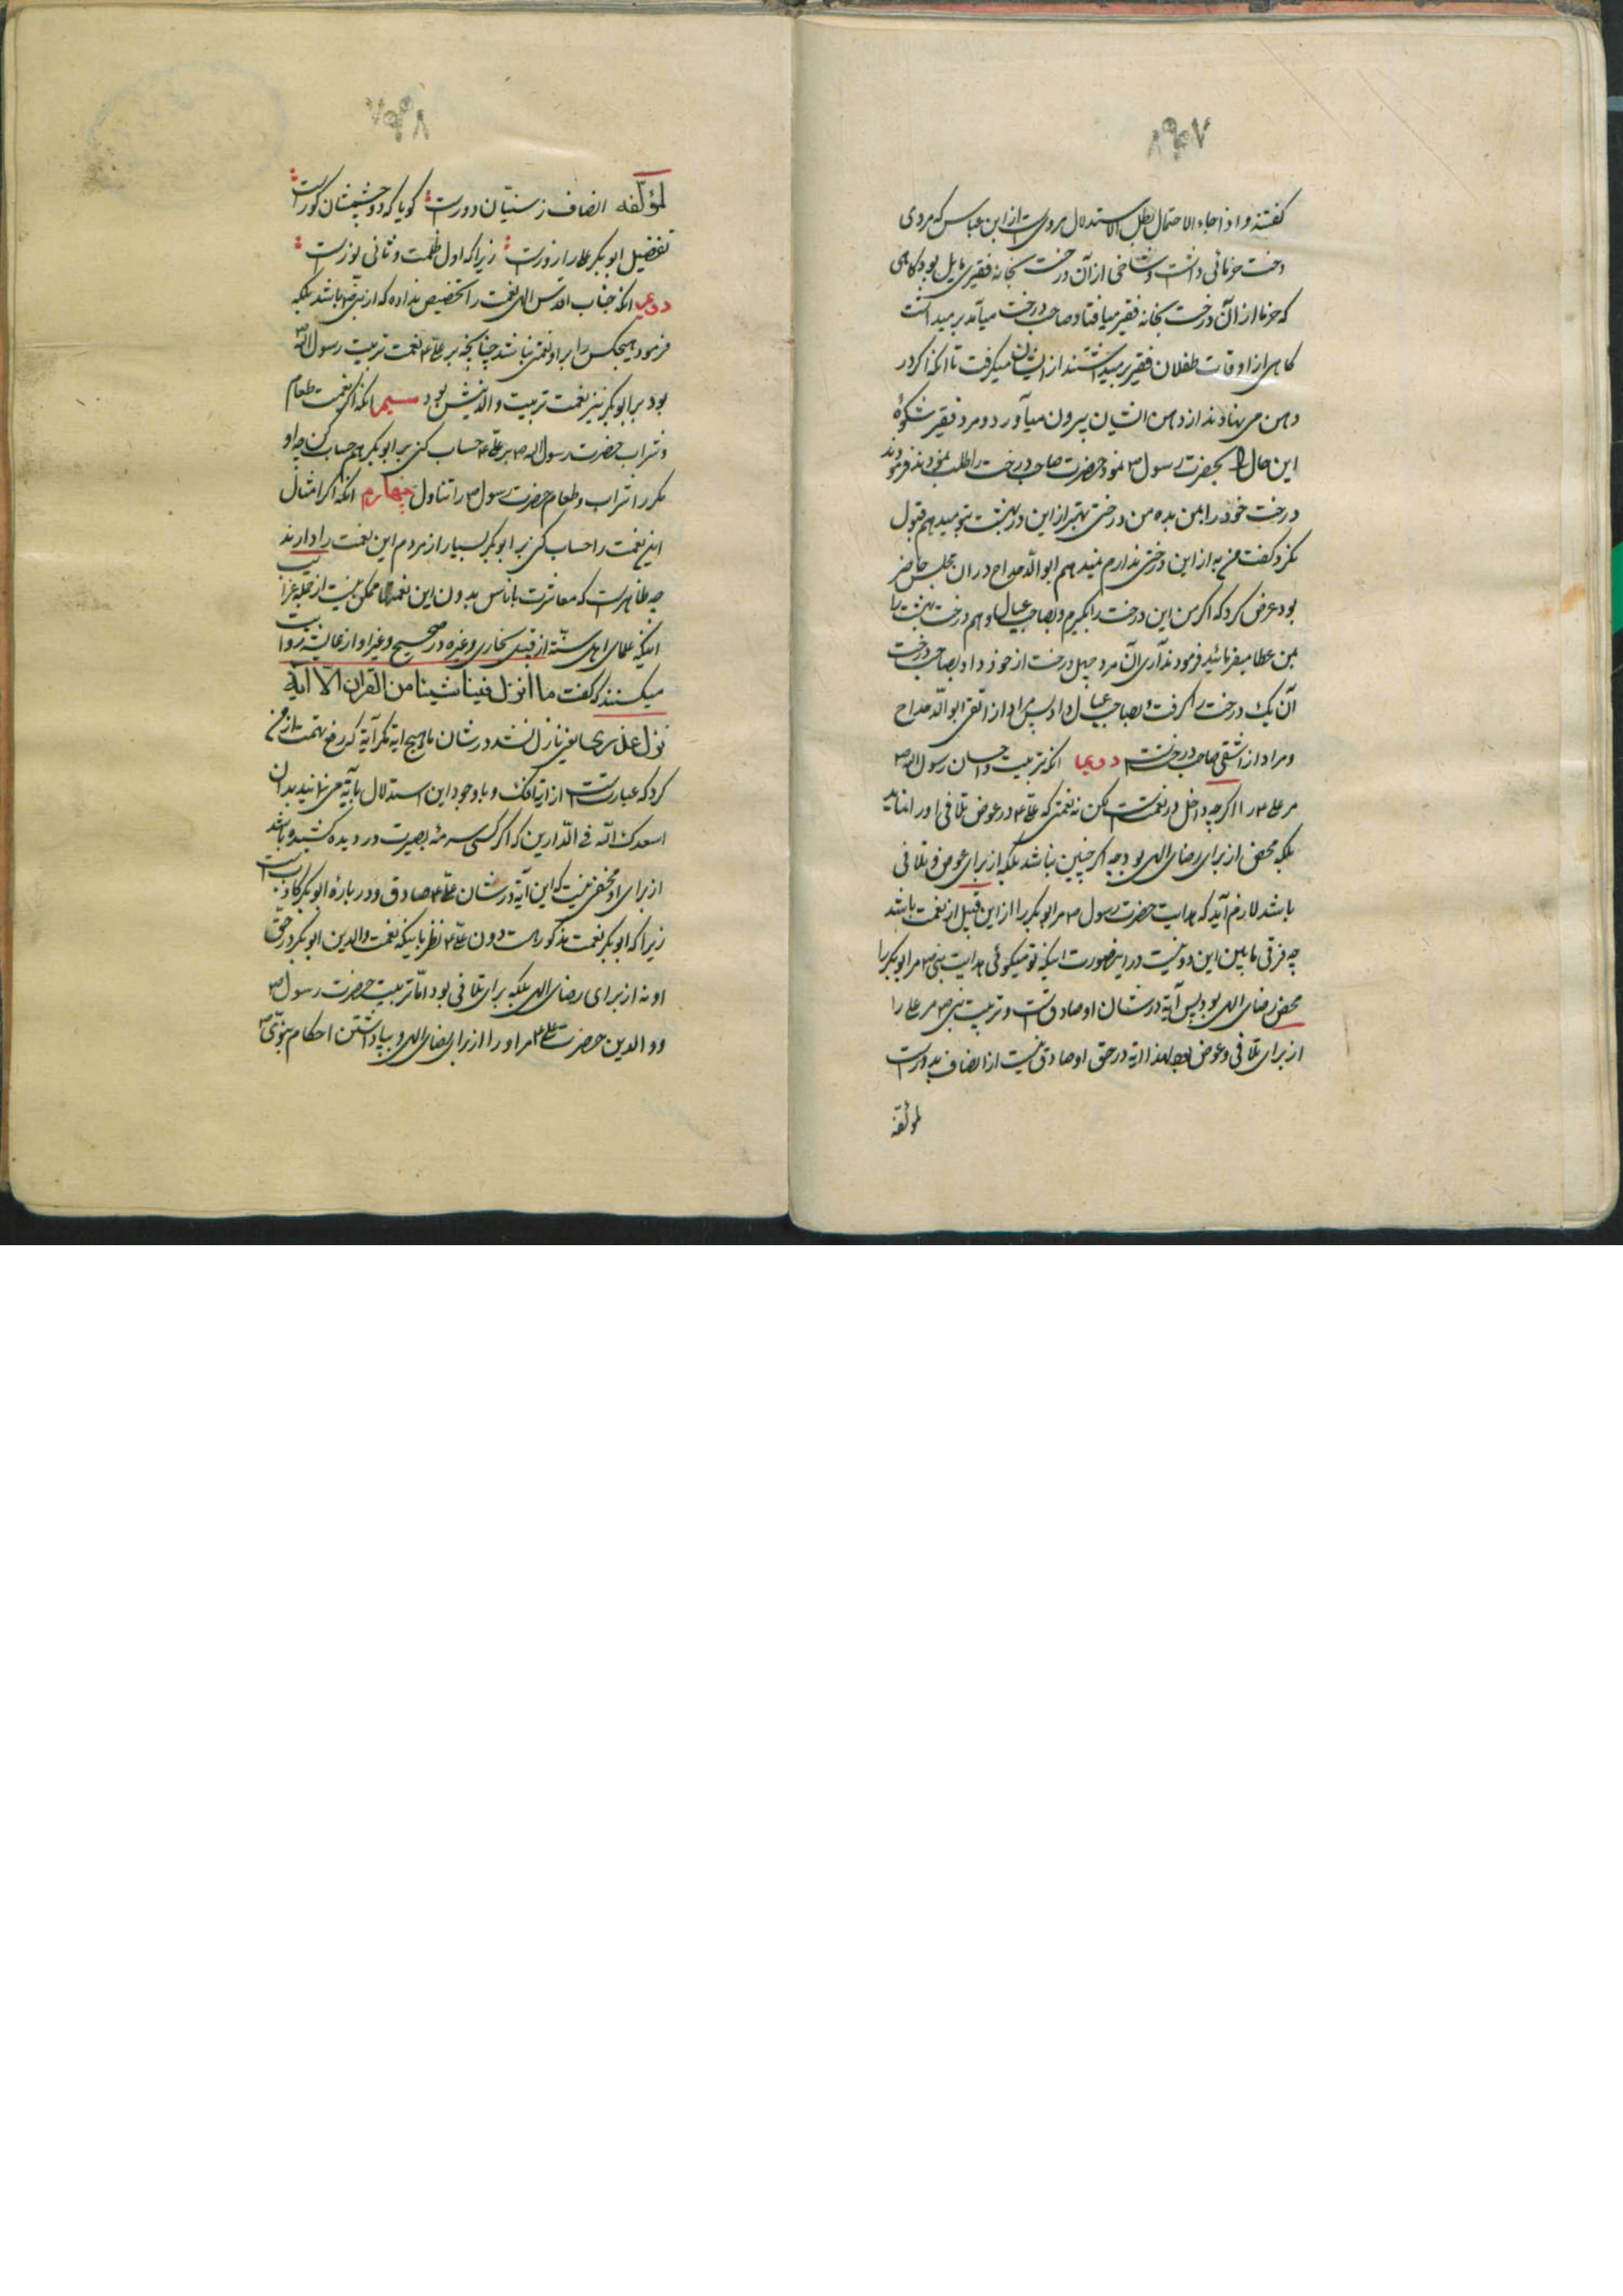 گفتند و اذا جاء الاحتمال بطل الاستدلال مرویست از ابن عباس که مردی
درخت خرمائی داشت و شاخی از آن درخت بخانه فقیری مایل بود گاهی
که خرما از آن درخت بخانه فقیر میافتاد صاحب درخت میآمد بر میداشت
گاهی از اوقات طفلان فقیر برمیداشتند از ایشان میگرفت تا آنکه اگر در
دهن می نهادند از دهن ایشان بیرون میآورد و مرد فقیر شکوهٔ
این حال را بحضرت رسول ص نمود حضرت صاحب درخت را طلب نمودند فرمودند
درخت خود را بمن بده من درختی بهتر از این در بهشت بتو میدهم قبول
نکرد و گفت من به از این درختی ندارم نمیدهم ابو الدحداح در آن مجلس حاضر
بود عرض کرد که اگر من این درخت را بگیرم و بصاحب عیال دهم درخت بهشت را
بمن عطا میفرمائید فرمودند آری آن مرد چهل درخت از خود داد بصاحب درخت
آن یک درخت را گرفت و بصاحب عیال داد پس مراد از اتقی ابو الدحداح
و مراد از اشقی صاحب درختست دویم آنکه تربیت و احسان رسول الله ص
مر علی ع را اگر چه داخل در نعمتست لیکن نه نعمتی که علی ع در عوض تلافی او را نماید
بلکه محض از برای رضای الهی بود چه اگر چنین نباشد بلکه از برای عوض و تلافی
باشد لازم آید که هدایت حضرت رسول ص مر ابوبکر را از این قبیل از نعمت باشد
چه فرقی مابین این دو نیست در اینصورت اینکه تو میگوئی هدایت نبی ص مر ابوبکر را
محض رضای الهی بود پس آیه در شان او صادقست و تربیت نبی ص مر علی را
از برای تلافی و عوض بود لهذا آیه در حق او صادق نیست از انصاف بدورست
لمؤلفه
لمؤلفه انصاف ز سنیان دورست گویا که دو چشمشان کورست
تفضیل ابوبکر علی را زورست زیرا که اول ظلمت و ثانی نورست
دویم آنکه جناب اقدس الهی نعمت را تخصیص نداده که از نبی ص باشد بلکه
فرمود هیچکس را بر او نعمتی نباشد چنانچه بر علی ع نعمت تربیت رسول الله ص
بود بر ابوبکر نیز نعمت تربیت والدینش بود سیم آنکه اگر نعمت طعام
و شراب حضرت رسول الله ص بر علی ع حساب کنی بر ابوبکر هم حساب کن چه او
مکرر شراب و طعام حضرت رسول ص را تناول چهارم آنکه اگر امثال
این نعمت را حساب کنی بر ابوبکر بسیار از مردم این نعمت را دارند
چه ظاهرست که معاشرت با ناس بدون این نعمتها ممکن نیست از جمله غرایب
اینکه علمای اهل سنّة از قبیل بخاری و غیره در صحیح و غیر او از عایشه روایت
میکنند که گفت ما انزل فینا شیئا من القران الّا آیة
نزل عذری یعنی نازل نشد در شان ما هیچ آیه مگر آیهٔ که رفع تهمت از من
کرد که عبارتست از آیهٔ افک و با وجود این استدلال بآیه می نمانید بدان
اسعدک اللّه فی الدّارین که اگر کسی سرمهٔ بصیرت در دیده کشیده باشد
از برای او مخفی نیست که این آیه در شان علی ع صادق و در بارهٔ ابوبکر کاذبست
زیرا که ابوبکر نعمت مذکورست دون علی ع نظر باینکه نعمت والدین ابوبکر در حق
او نه از برای رضای الهی بلکه برای تلافی بود امّا تربیت حضرت رسول ص
و والدین حضرت علی ع مر او را از برای رضای الهی و بپا داشتن احکام نبوّی ص